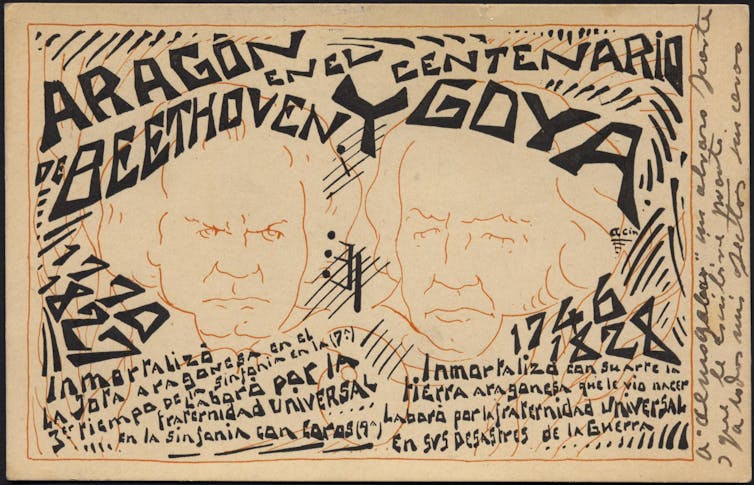 ARAGÓN EN EL CENTENARIO
DE BEETHOVEN Y GOYA
1770
1827
Inmortalizó
La Jota aragonesa en el
3er tiempo de la sinfonía en la (7ª)
Laboró por la
fraternidad UNIVERSAL
en la sinfonia con coros (9ª)
1746
1828
Inmortalizó con su arte la
tierra aragonesa que le vio nacer
Laboró por la fraternidad UNIVERSAL
en sus Desastres de la Guerra
Acín
un abrazo
y que le escribiré pronto
todos mis